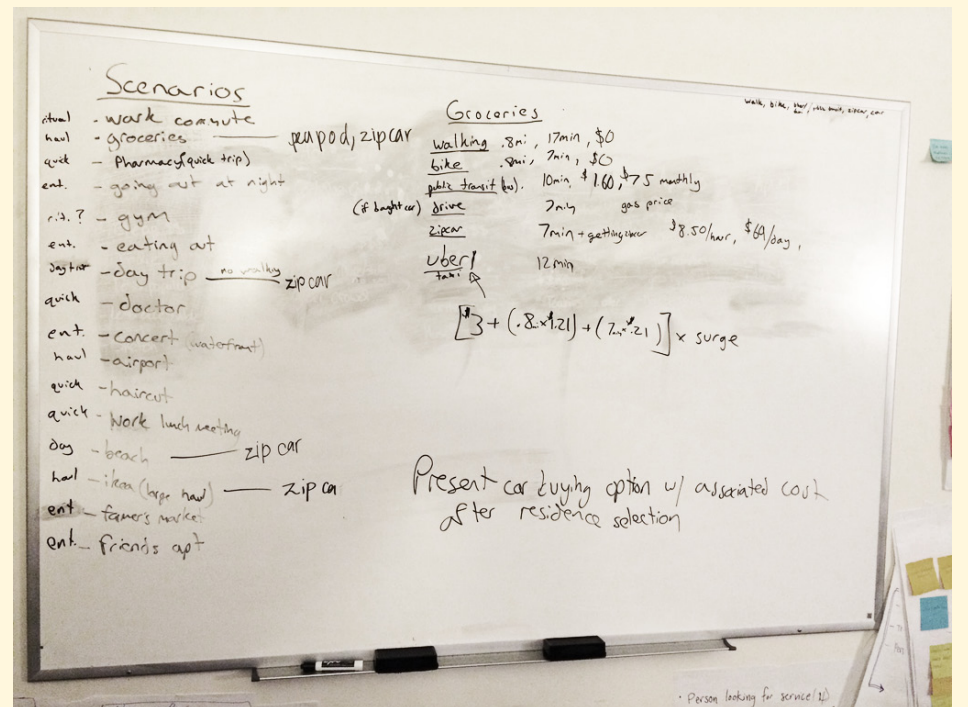 Scenarios
ritual - work commute
haul - groceries — peapod, zipcar
quick - Pharmacy (quick trip)
ent. - going out at night
rit.? - gym
ent. - eating out
day trip - day trip no walking zipcar
quick - doctor
ent. - concert (waterfront)
haul - airport
quick - haircut
quick - Work lunch meeting
day - beach — zip car
haul - ikea (large haul) — zip ca
ent - famer's market
ent. - friends apt
walk, bike, zipcar, car
Groceries
walking .8mi, 17min, $0
bike .8mi, 7min, $0
public transit (bus). 10min, $1.60, $75 monthly
(if bought car) drive 7min gas price
zipcar 7min + getting $8.50/hour, $69/day,
uber/
taxi 12min
[$3 + (.8 x $1.21) + (7min x $.21)] x surge
Present car buying option w/ associated cost
after residence selection
· Person looking for service